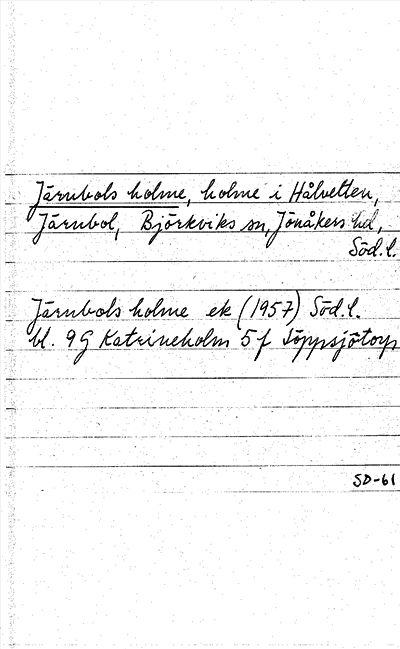 Järnbols holme, holme i Hålvetten,
Järnbol, Björkviks sn, Jönåkers hd,
Söd.l.
Järnbols holme ek (1957) Söd.l.
bl. 9G Katrineholm 5f Söppsjötorp
SD-61